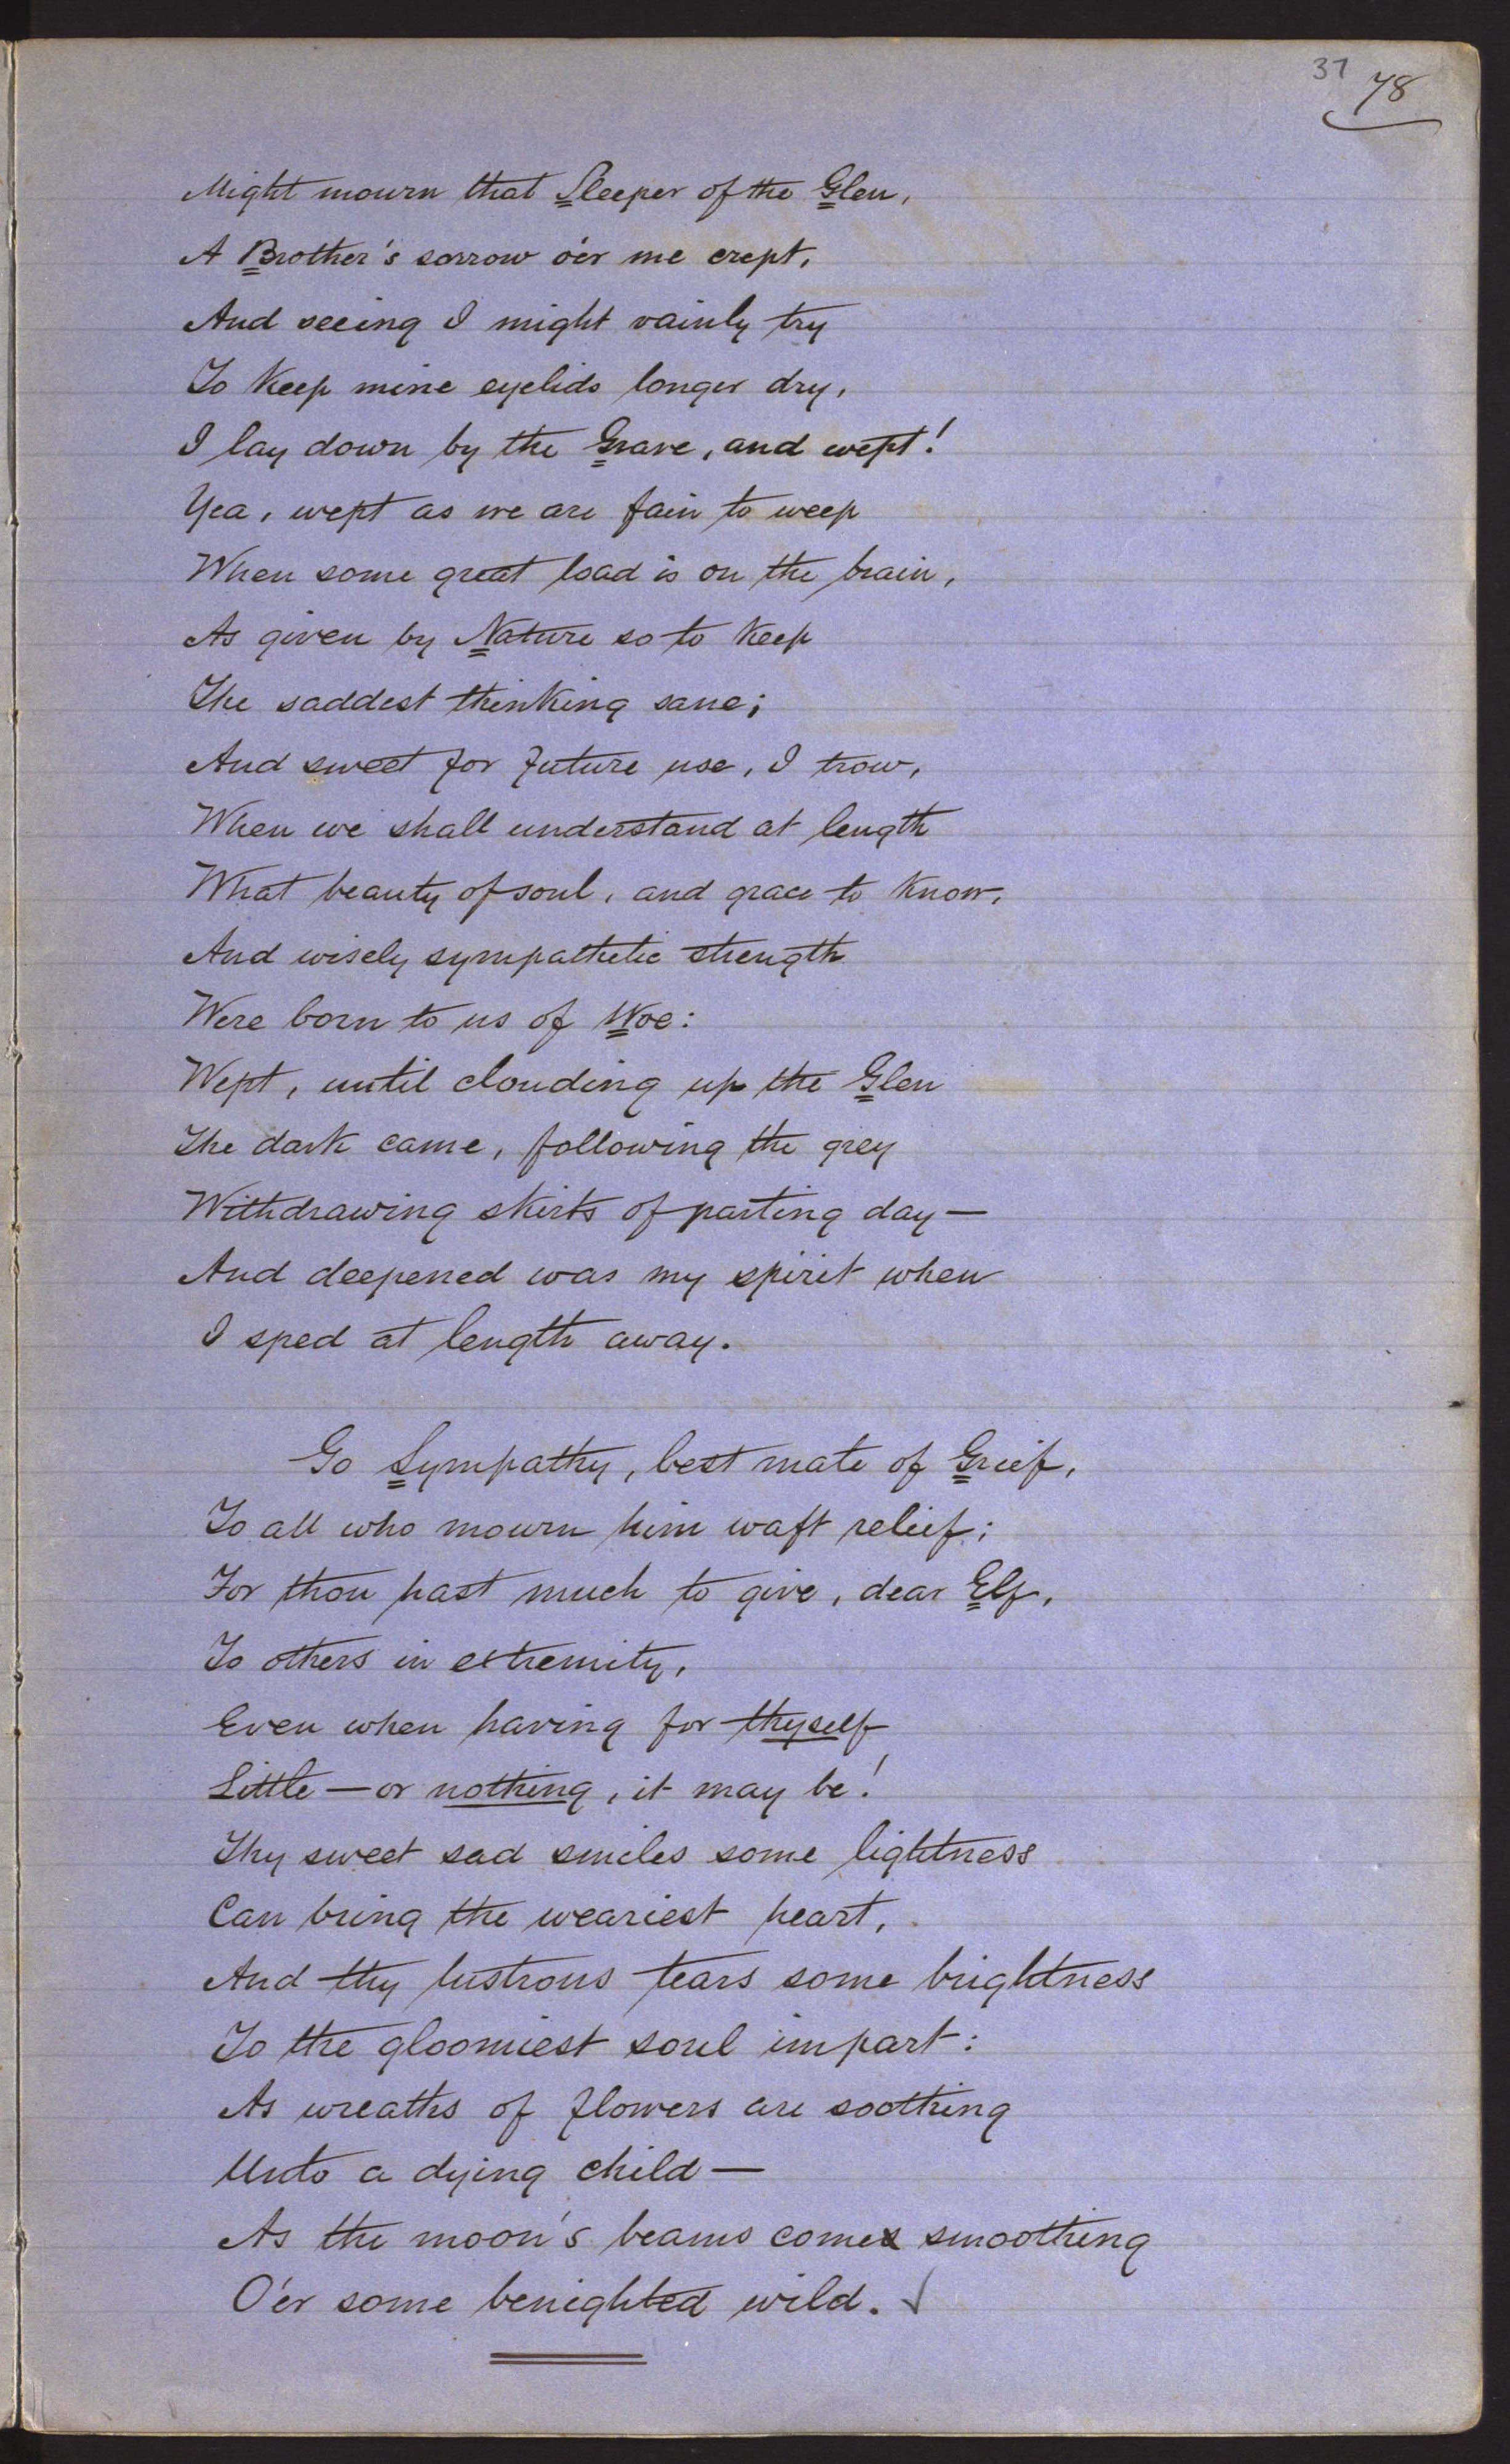 37 78
Might mourn that Sleeper of the Glen,
A Brother's sorrow o'er me crept,
And seeing I might vainly try
To keep mine eyelids longer dry,
I lay down by the Grave, and wept!
Yea, wept as we are fain to weep
When some great load is on the brain,
As given by Nature so to keep
The saddest thinking sane;
And sweet for future use, I trow,
When we shall understand at length
What beauty of soul, and grace to know,
And wisely sympathetic strength
Were born to us of Woe:
Wept, until clouding up the Glen
The dark came, following the grey
Withdrawing skirts of parting day—
And deepened was my spirit when
I sped at length away.
Go Sympathy, best mate of Grief,
To all who mourn him waft relief;
For thou hast much to give, dear Elf,
To others in extremity,
Even when having for thyself
Little—or nothing, it may be!
Thy sweet sad smiles some lightness
Can bring the weariest heart,
And thy lustrous tears some brightness
To the gloomiest soul impart:
As wreaths of flowers are soothing
Unto a dying child—
As the moon's beams comes smoothing
O'er some benighted wild.